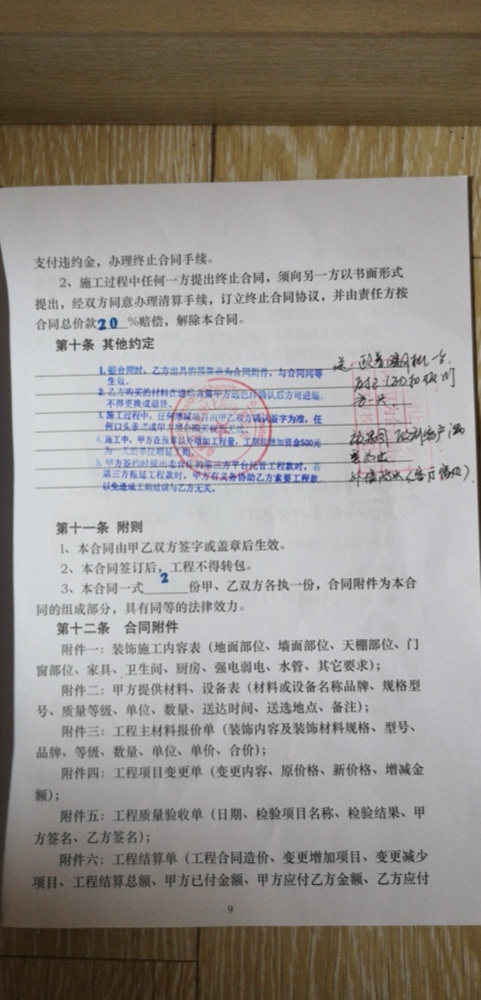 支付违约金，办理终止合同手续。
2、施工过程中任何一方提出终止合同，须向另一方以书面形式
提出，经双方同意办理清算手续，订立终止合同协议，并由责任方按
合同总价款20%赔偿，解除本合同。
第十条 其他约定
1.签合同时，乙方出具的预算表为合同附件，与合同同等
生效。
2.乙方购买的材料在进场前需甲方选色并确认后方可进场，
不得更换或退货。
3.施工过程中，任何增减项目由甲乙双方确认签字为准，任
何口头承诺
4.施工中，甲方在预算以外增加工程量，工期按增加资金500元
为一天的单位顺延工期。
5.甲方签约时提出走合作的第三方平台托管工程款时，若
第三方拖延工程款时，甲方有义务协助乙方索要工程款，
以免造成工期延误与乙方无关。
送
第十一条 附则
1、本合同由甲乙双方签字或盖章后生效。
2、本合同签订后，工程不得转包。
3、本合同一式2份甲、乙双方各执一份，合同附件为本合
同的组成部分，具有同等的法律效力。
第十二条 合同附件
附件一：装饰施工内容表（地面部位、墙面部位、天棚部位、门
窗部位、家具、卫生间、厨房、强电弱电、水管、其它要求）；
附件二：甲方提供材料、设备表（材料或设备名称品牌、规格型
号、质量等级、单位、数量、送达时间、送选地点、备注）；
附件三：工程主材料报价单（装饰内容及装饰材料规格、型号、
品牌、等级、数量、单位、单价、合价）；
附件四：工程项目变更单（变更内容、原价格、新价格、增减金
额）；
附件五：工程质量验收单（日期、检验项目名称、检验结果、甲
方签名、乙方签名）；
附件六：工程结算单（工程合同造价、变更增加项目、变更减少
项目、工程结算总额、甲方已付金额、甲方应付乙方金额、乙方应付
9